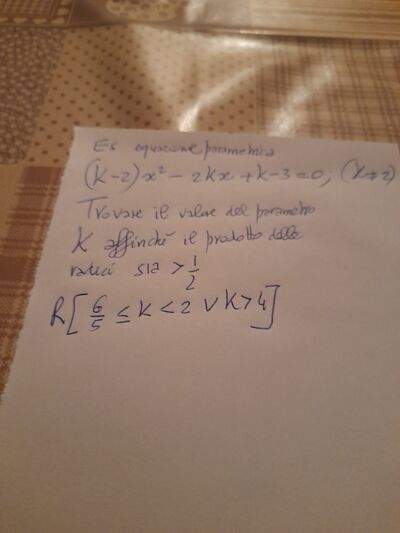 Es equazione parametrica
(k-2)x² - 2kx + k-3 = 0; (k≠2)
Trovare il valore del parametro
K affinché il prodotto delle
radici sia > 1/2
R[6/5 ≤ k < 2 ∨ k > 4]